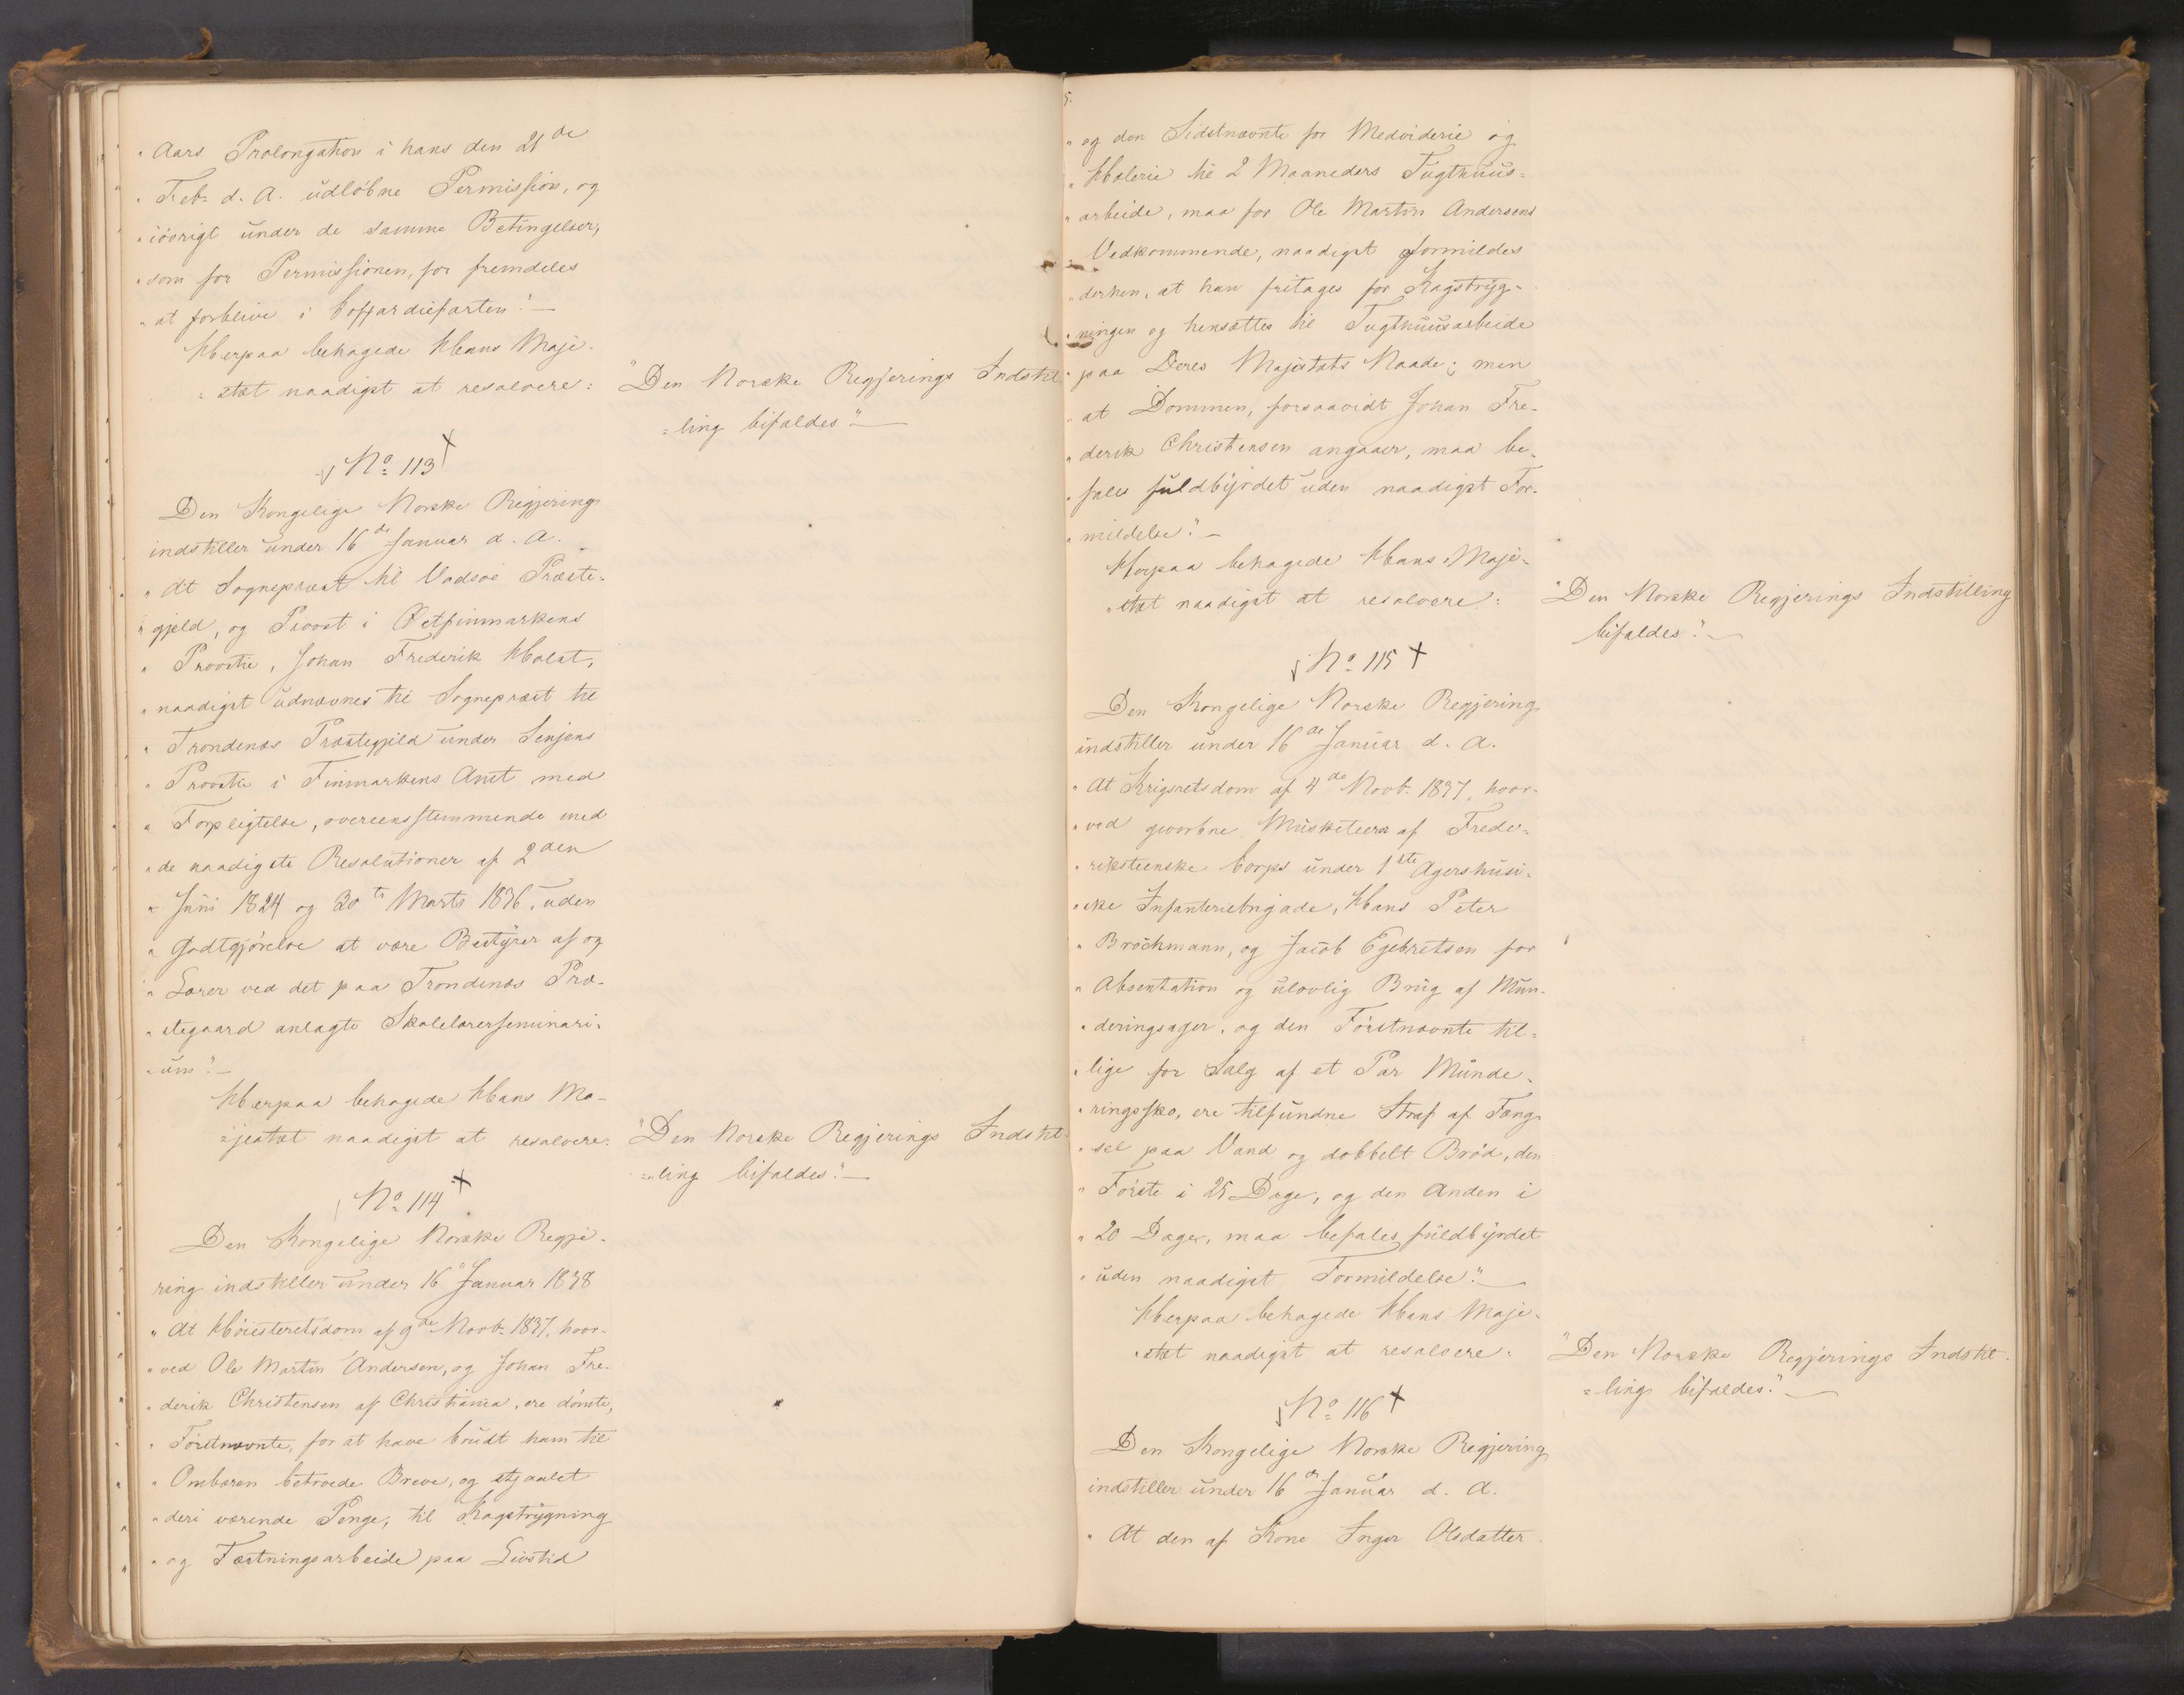 " Aars Prolongation i hans den 21de
" Feb. d. A. udløbne Permission, og
" iøvrigt under de samme Betingelser,
" som for Permissionen, for fremdeles
" at forblive i Coffardiefarten." —
Herpaa behagede Hans Maje-
= stæt naadigst at resolvere:
"Den Norske Regjerings Indstil-
=ling bifaldes." —
No 113 +
Den Kongelige Norske Regjering
indstiller under 16de Januar d. A.
" At Sognepræst til Vadsøe Præste-
" gjeld, og Provst i Østfinmarkens
" Provstie, Johan Frederik Holst,
" naadigst udnævnes til Sognepræst til
" Trondenæs Præstegjeld under Senjens
" Provstie i Finmarkens Amt med
" Forpligtelse, overeensstemmende med
" de naadigste Resolutioner af 2den
" Juni 1824 og 30te Marts 1836, uden
" Godtgjørelse at være Bestyrer af og
" Lærer ved det paa Trondenæs Præ-
" stegaard anlagte Skolelærerseminari-
" um." —
Herpaa behagede Hans Ma-
=jestæt naadigst at resolvere:
"Den Norske Regjerings Indstil-
=ling bifaldes." —
No 114 +
Den Kongelige Norske Regje-
ring indstiller under 16 Januar 1838
" At Høiesteretsdom af 9de Novb. 1837, hvor-
" ved Ole Martin Andersen, og Johan Fre-
" derik Christensen af Christiania, ere dømte,
" Førstnævnte, for at have brudt ham til
" Ombæren betroede Breve, og stjaalet
" deri værende Penge, til Kagstrygning
" og Fæstningsarbeide paa Livstid
5.
" og den Sidstnævnte for Medviderie og
" Hæleri til 2 Maaneders Tugthuus-
" arbeide, maa for Ole Martin Andersens
" Vedkommende, naadigst formildes
" derhen, at han fritages for Kagstryg-
" ningen og hensættes til Tugthuusarbeide
" paa Deres Majestæts Naade; men
" at Dommen, forsaavidt Johan Fre-
" derik Christensen angaaer, maa be-
" fales fuldbyrdet uden naadigst For-
" mildelse." —
Herpaa behagede Hans Maje-
" stæt naadigst at resolvere:
"Den Norske Regjerings Indstilling
bifaldes." —
No 115 +
Den Kongelige Norske Regjering
indstiller under 16de Januar d. A.
" At Krigsretsdom af 4de Novb. 1837, hvor-
" ved hvervede Musketerer af Frede-
" riksteenske Corps under 1ste Agershusi-
" ske Infanteriebrigade, Hans Peter
" Brochmann, og Jacob Egebretsen for
" Absentation og ulovlig Brug af Mun-
" deringsager, og den Førstnævnte til-
" lige for Salg af et Par Munde-
" ringssko, ere tilfundne Straf af Fæng-
" sel paa Vand og dobbelt Brød, den
" Første i 25 Dage, og den Anden i
" 20 Dage, maa befales fuldbyrdet
" uden naadigst Formildelse." —
Herpaa behagede Hans Maje-
" stæt naadigst at resolvere:
"Den Norske Regjerings Indstil-
=ling bifaldes." —
No 116 +
Den Kongelige Norske Regjering
indstiller under 16de Januar d. A.
" At den af Kone Inger Olsdatter